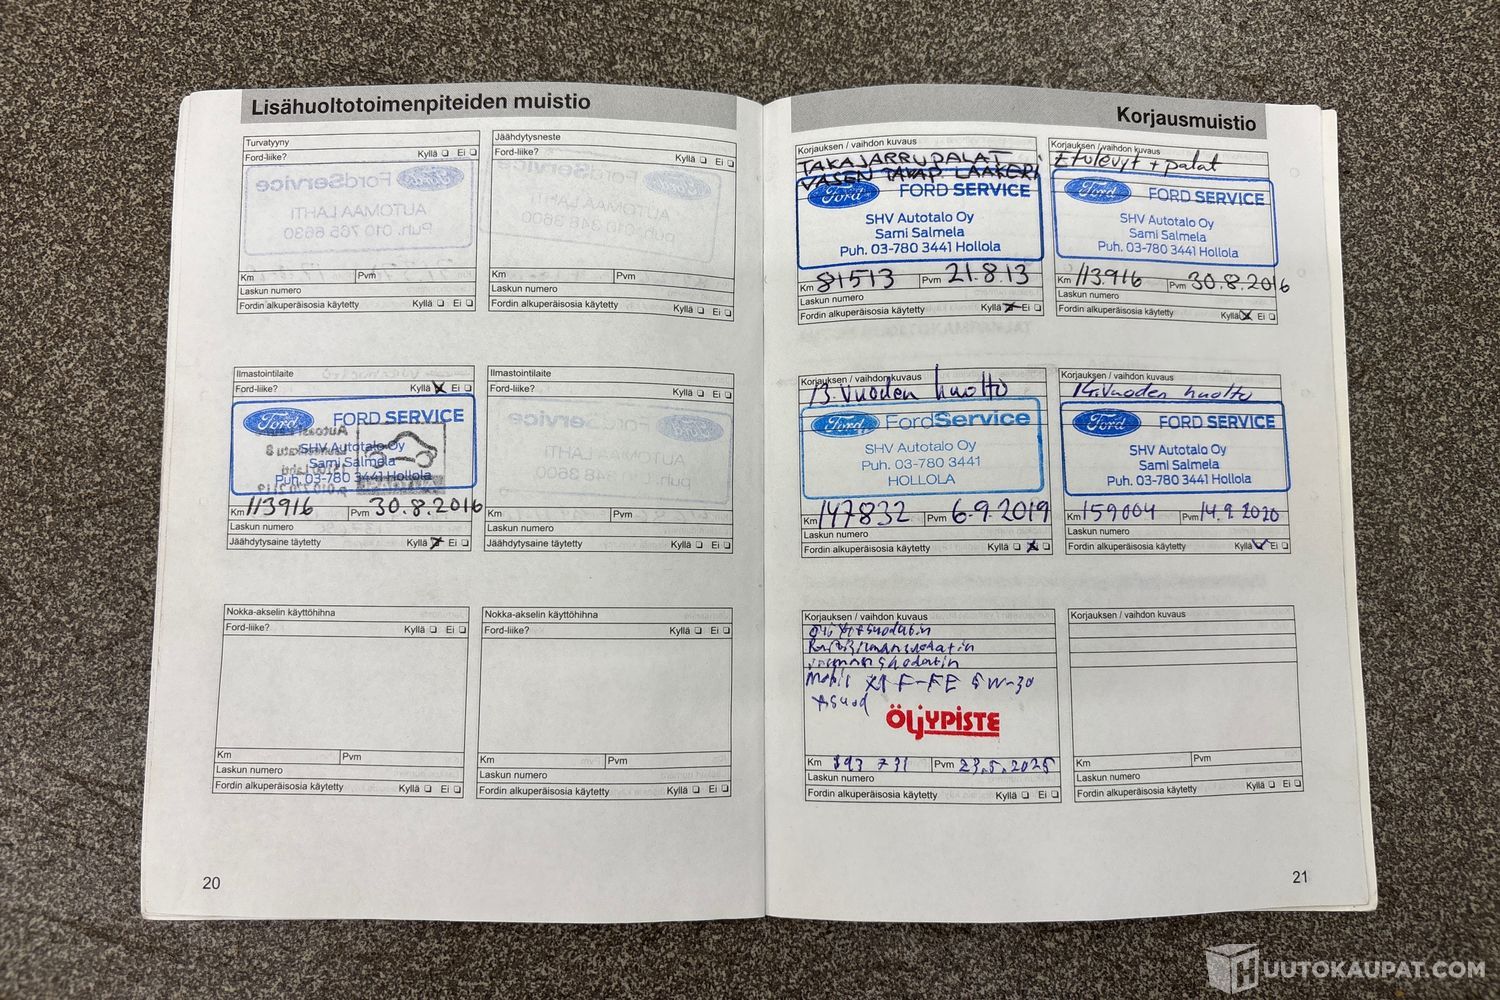 Lisähuoltotoimenpiteiden muistio
Turvatyyny
Ford-liike? Kyllä Ei
Km Pvm
Laskun numero
Fordin alkuperäisosia käytetty Kyllä Ei
Jäähdytysneste
Ford-liike? Kyllä Ei
Km Pvm
Laskun numero
Fordin alkuperäisosia käytetty Kyllä Ei
Ilmastointilaite
Ford-liike? Kyllä Ei
Ford FORD SERVICE
SHV Autotalo Oy
Sami Salmela
Puh. 03-780 3441 Hollola
Km 113916 Pvm 30.8.2016
Laskun numero
Jäähdytysaine täytetty Kyllä Ei
Ilmastointilaite
Ford-liike? Kyllä Ei
Km Pvm
Laskun numero
Jäähdytysaine täytetty Kyllä Ei
Nokka-akselin käyttöhihna
Ford-liike? Kyllä Ei
Km Pvm
Laskun numero
Fordin alkuperäisosia käytetty Kyllä Ei
Nokka-akselin käyttöhihna
Ford-liike? Kyllä Ei
Km Pvm
Laskun numero
Fordin alkuperäisosia käytetty Kyllä Ei
20
Korjausmuistio
Korjauksen / vaihdon kuvaus
TAKAJARRUPALAT
VASEN TAKAP. LAAKERI
Ford FORD SERVICE
SHV Autotalo Oy
Sami Salmela
Puh. 03-780 3441 Hollola
Km 81513 Pvm 21.8.13
Laskun numero
Fordin alkuperäisosia käytetty Kyllä Ei
Korjauksen / vaihdon kuvaus
Etulevyt + palat
Ford FORD SERVICE
SHV Autotalo Oy
Sami Salmela
Puh. 03-780 3441 Hollola
Km 113916 Pvm 30.8.2016
Laskun numero
Fordin alkuperäisosia käytetty Kyllä Ei
Korjauksen / vaihdon kuvaus
13. vuoden huolto
Ford FordService
SHV Autotalo Oy
Puh. 03-780 3441
HOLLOLA
Km 147832 Pvm 6.9.2019
Laskun numero
Fordin alkuperäisosia käytetty Kyllä Ei
Korjauksen / vaihdon kuvaus
14. vuoden huolto
Ford FORD SERVICE
SHV Autotalo Oy
Sami Salmela
Puh. 03-780 3441 Hollola
Km 159004 Pvm 14.9.2020
Laskun numero
Fordin alkuperäisosia käytetty Kyllä Ei
Korjauksen / vaihdon kuvaus
Raitisilmansuodatin
ilmansuodatin
Mobil X1 F-FE 5W-30
ÖLJYPISTE
Km 193 731 Pvm 23.5.2025
Laskun numero
Fordin alkuperäisosia käytetty Kyllä Ei
Korjauksen / vaihdon kuvaus
Km Pvm
Laskun numero
Fordin alkuperäisosia käytetty Kyllä Ei
21
HUUTOKAUPAT.COM